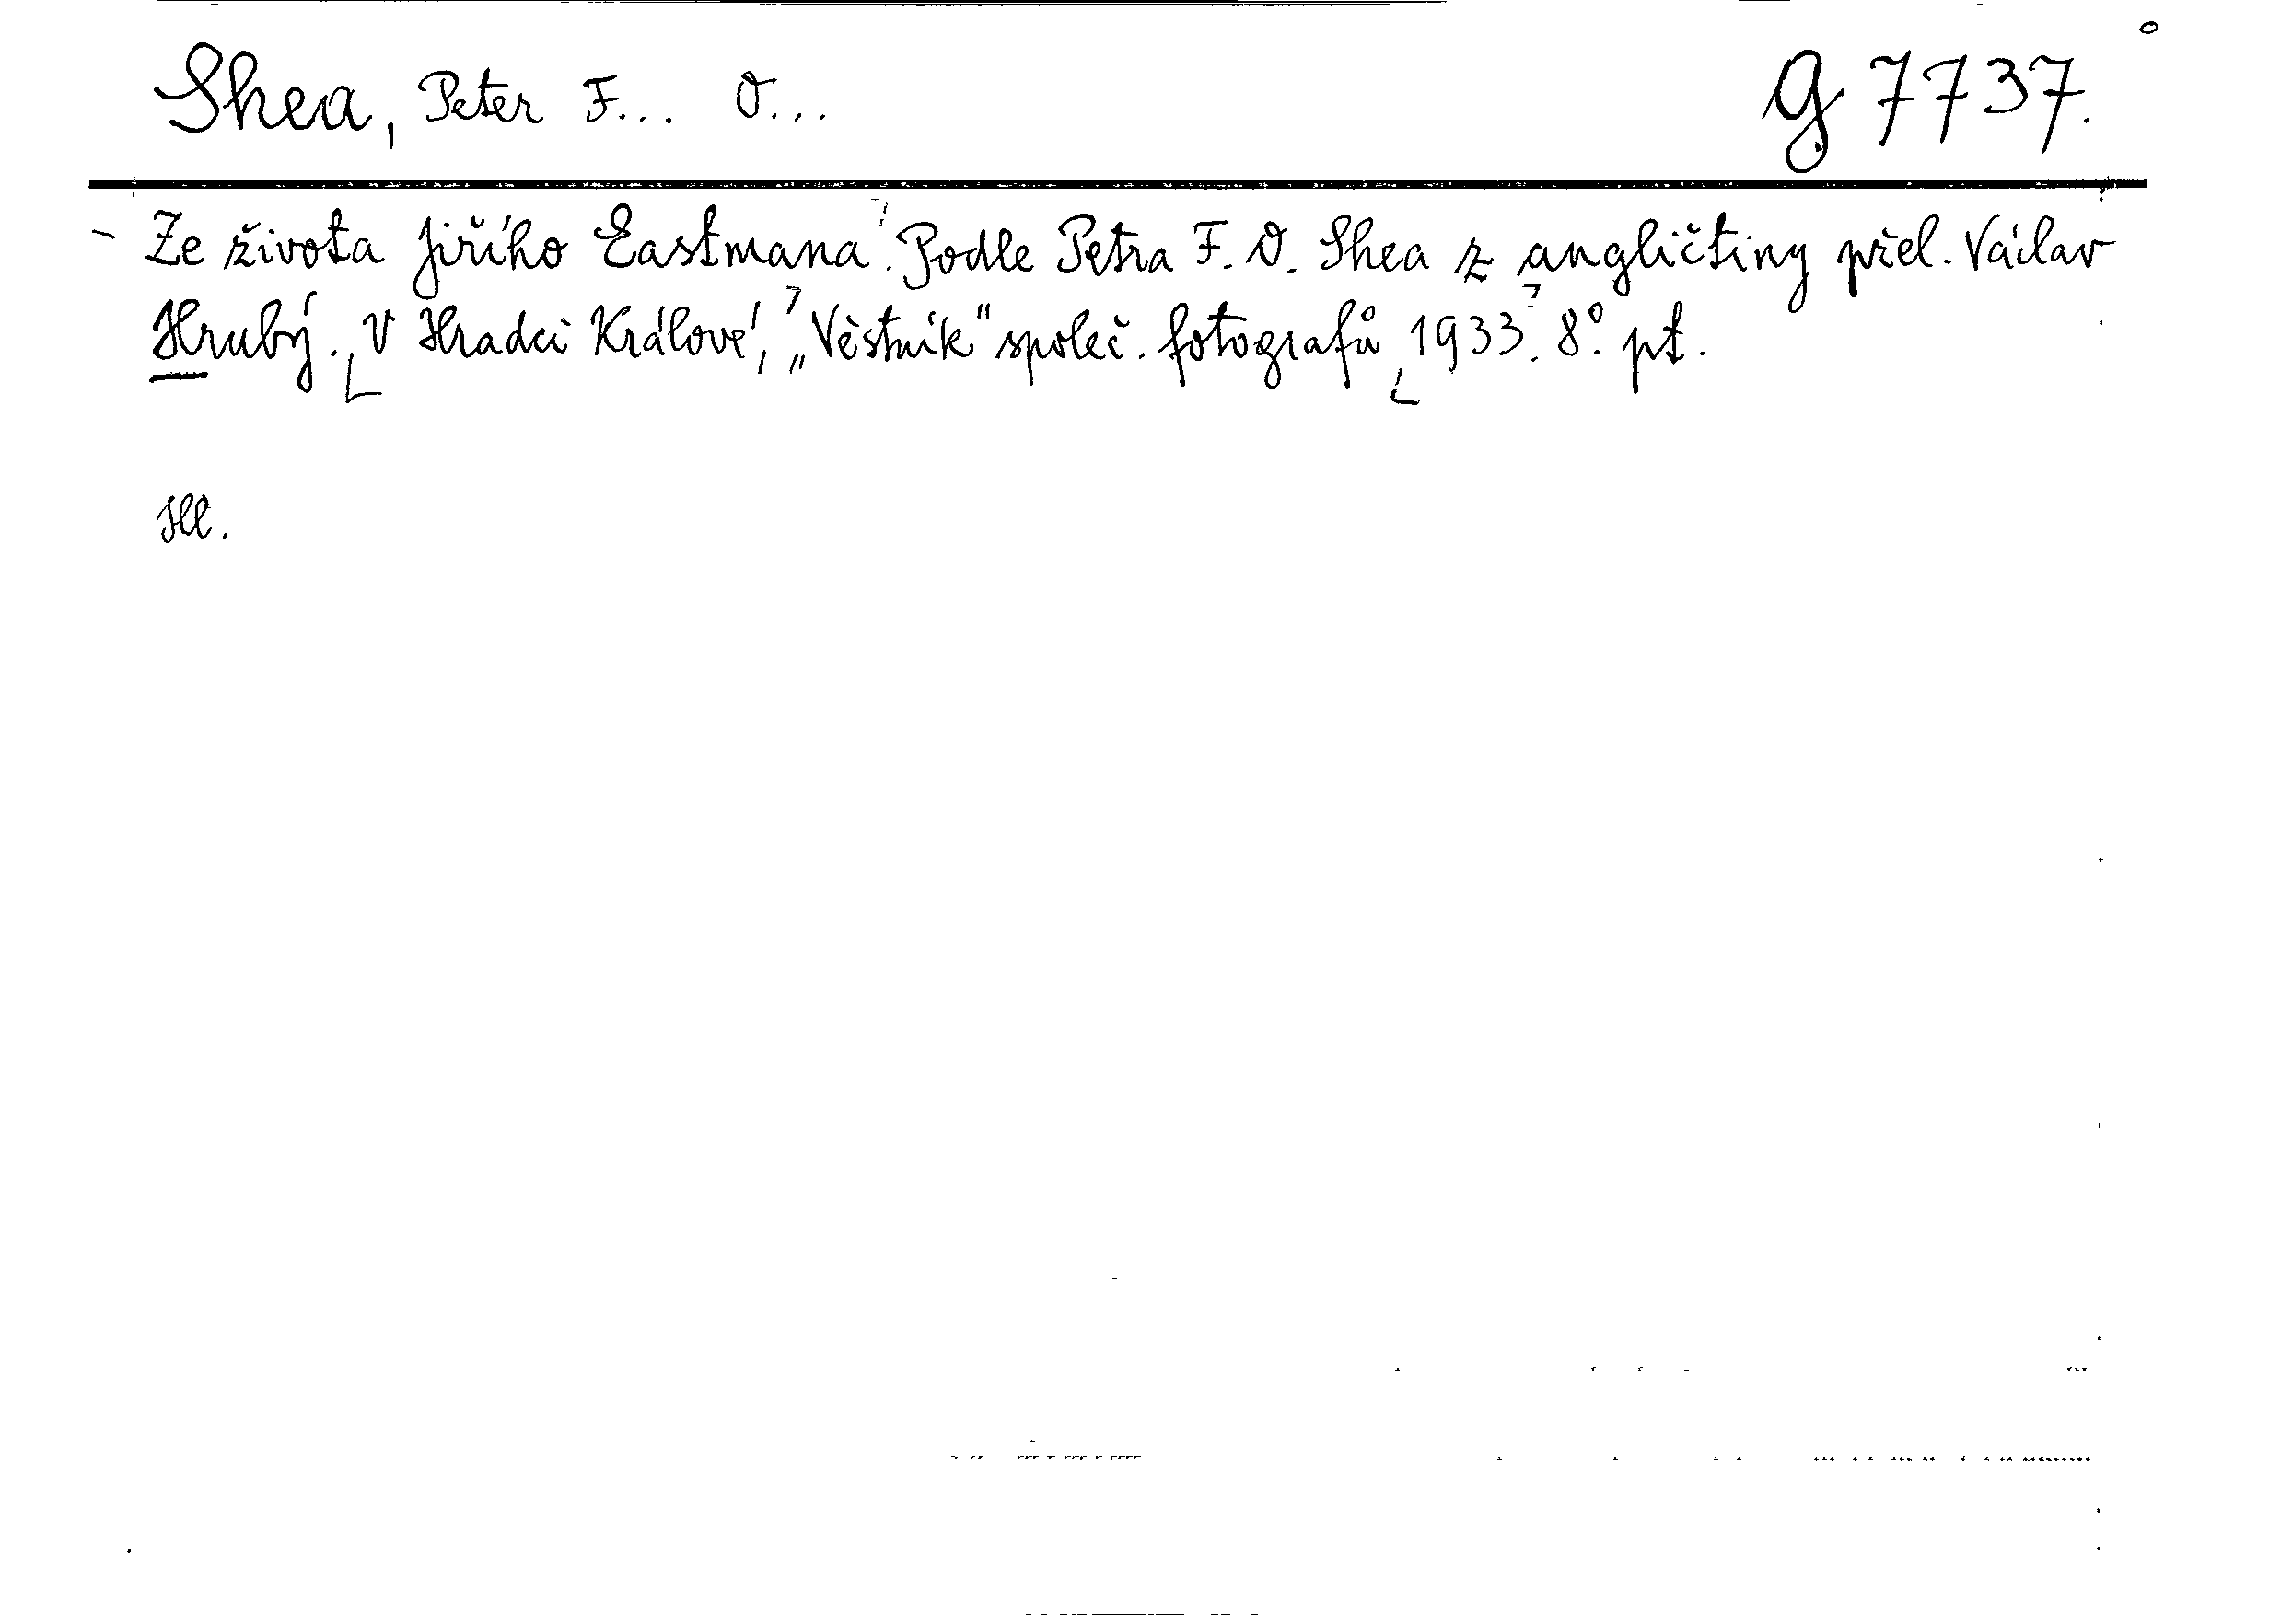 Shea, Peter F... O... g 7737.
Ze života Jiřího Eastmana. Podle Petra F. O. Shea z angličtiny přel. Václav
Hrubý. V Hradci Králové, „Věstník" společ. fotografů 1933. 8°. pt.
Hl.